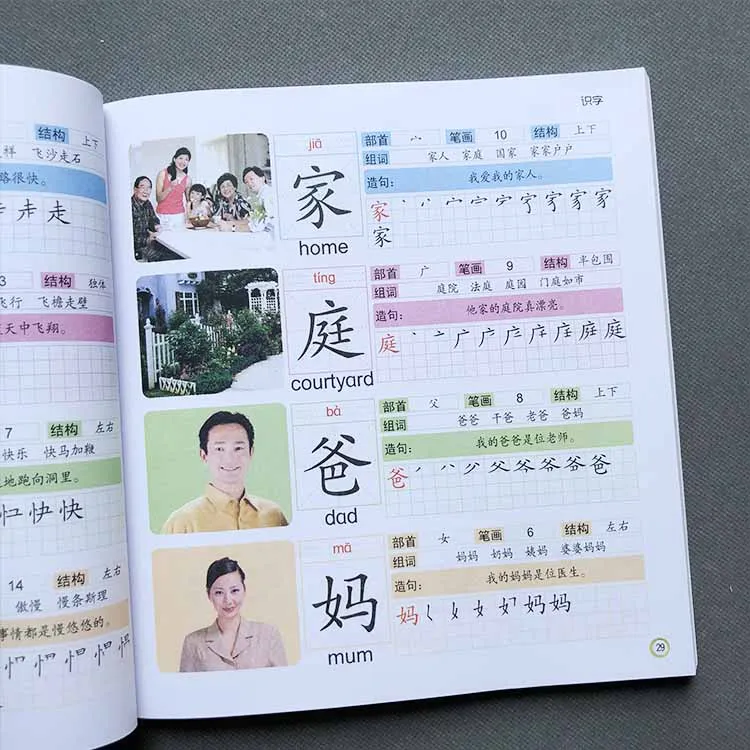 结构 上下
祥 飞沙走石
路很快。
走
3 结构 独体
飞行 飞檐走壁
天中飞翔。
7 结构 左右
快乐 快马加鞭
地跑向洞里。
快
14 结构 左右
傲慢 慢条斯理
事情都是慢悠悠的。
识字
jiā
家
home
部首 宀 笔画 10 结构 上下
组词 家人 家庭 国家 家家户户
造句： 我爱我的家人。
家
家
tíng
庭
courtyard
部首 广 笔画 9 结构 半包围
组词 庭院 法庭 庭园 门庭如市
造句： 他家的庭院真漂亮。
庭 丶 亠 广 庭
bà
爸
dad
部首 父 笔画 8 结构 上下
组词 爸爸 干爸 老爸 爸妈
造句： 我的爸爸是位老师。
爸 父 爸
mā
妈
mum
部首 女 笔画 6 结构 左右
组词 妈妈 奶妈 姨妈 婆婆妈妈
造句： 我的妈妈是位医生。
妈 女 妈 妈
29